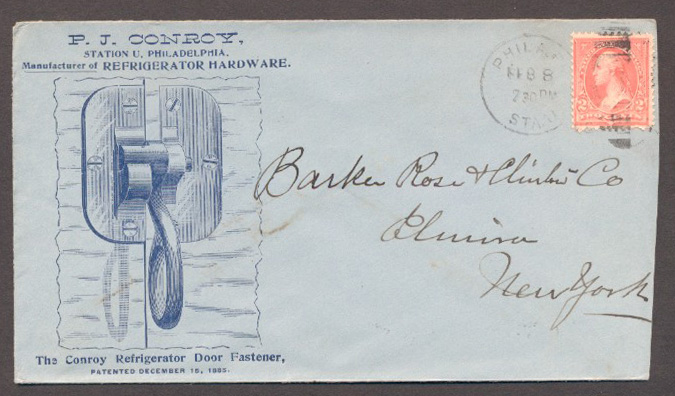 P. J. CONROY,
STATION U, PHILADELPHIA,
Manufacturer of REFRIGERATOR HARDWARE.
PHILA
FEB 8
730PM
STA
2 2
Barker Rose & Clinton Co
Elmira
New York
The Conroy Refrigerator Door Fastener,
PATENTED DECEMBER 15, 1885.